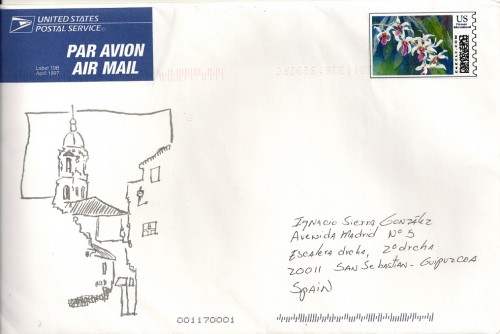 UNITED STATES
POSTAL SERVICE
PAR AVION
AIR MAIL
Label 19B
April 1997
US
Ignacio Sierra González
Avenida Madrid Nº 5
Escalera drcha, 2º drcha
20011 San Sebastian - Guipuzcoa
Spain
001170001